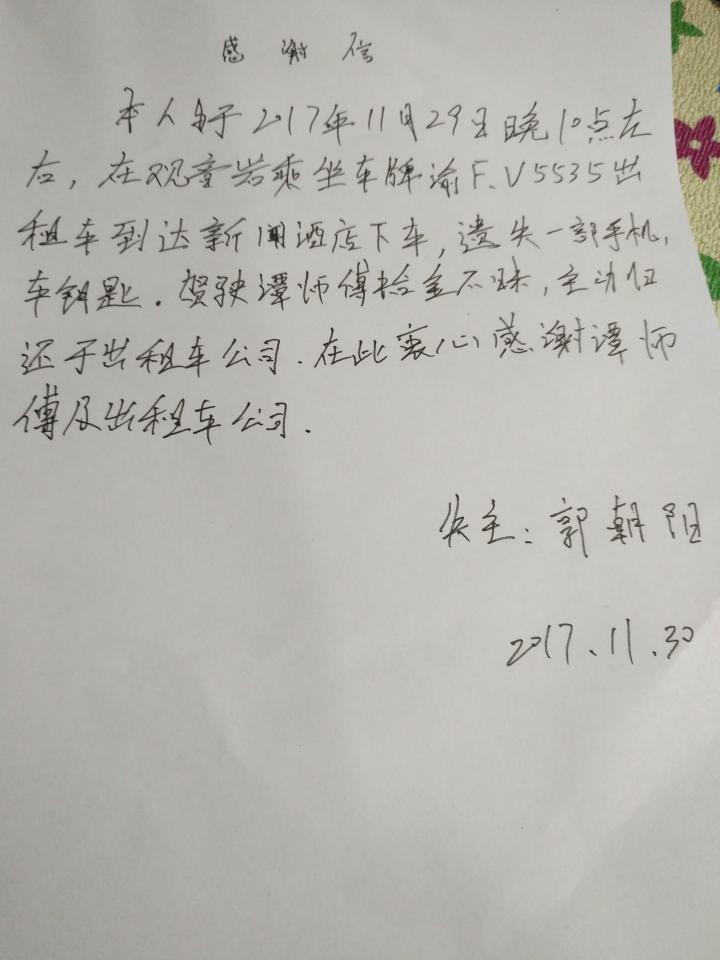 感谢信
本人于2017年11月29日晚10点左
右，在观音岩乘坐车牌渝F.V5535出
租车到达新闻酒店下车，遗失一部手机，
车钥匙．驾驶谭师傅拾金不昧，主动归
还于出租车公司．在此衷心感谢谭师
傅及出租车公司．
失主：郭朝阳
2017.11.30